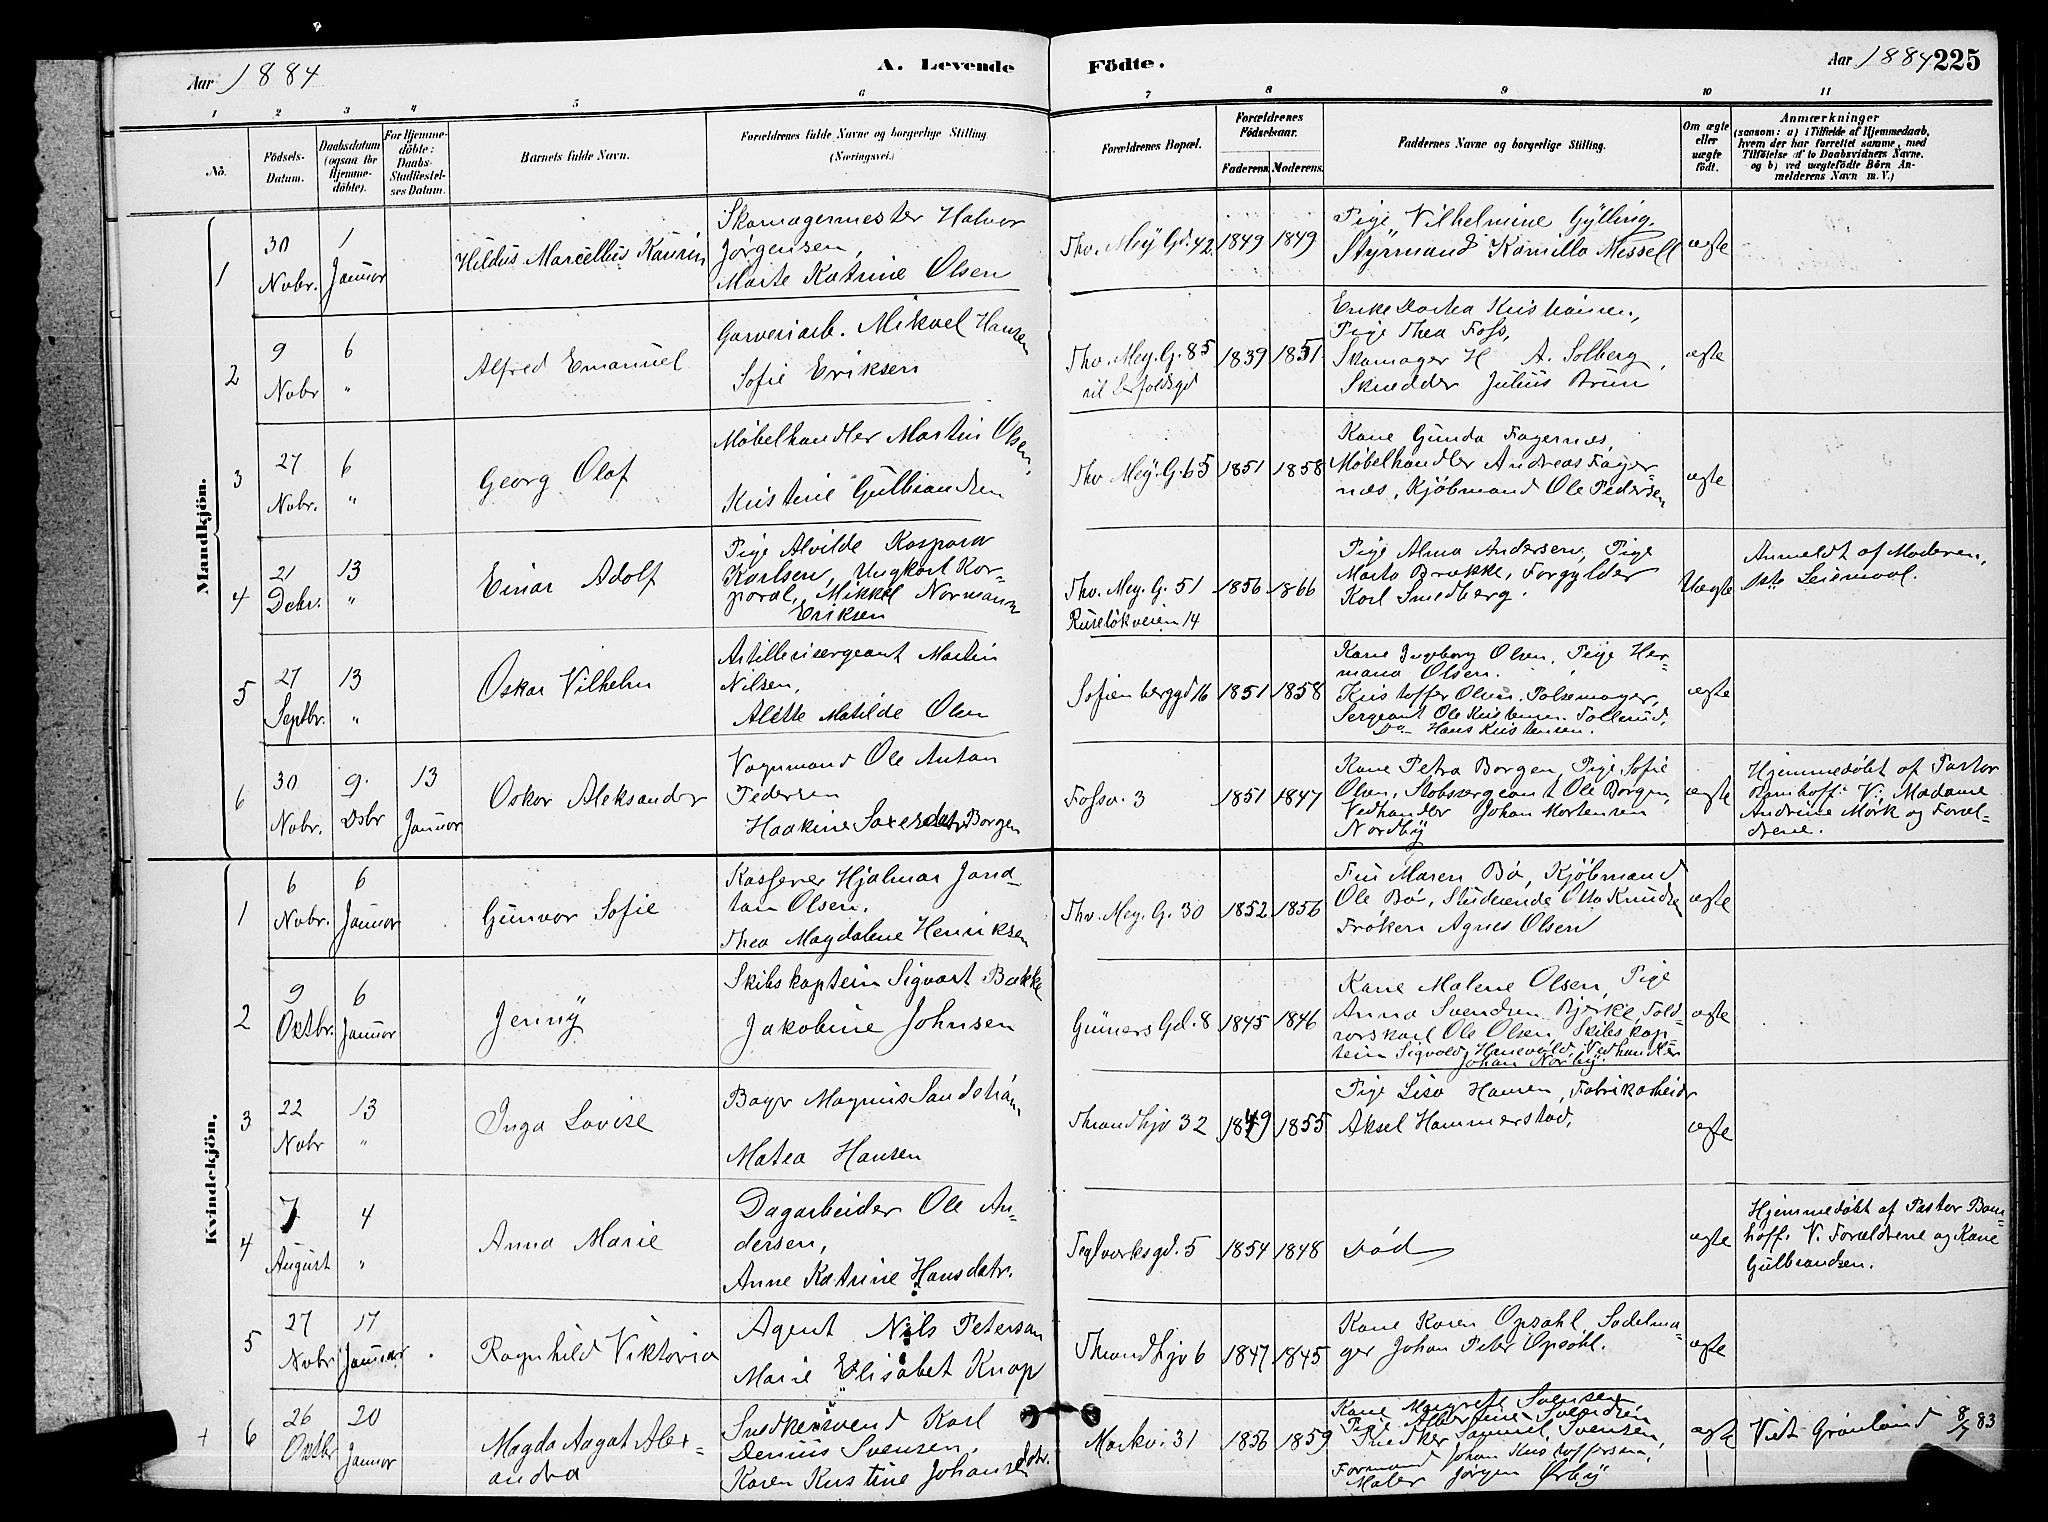 Aar 1884
A. Levende Fødte.
Aar 1884 225
1 2 3 4 5 6 7 8 9 10 11
No.
Födsels-Datum.
Daabsdatum (ogsaa for Hjemme-döbte).
For Hjemme-döbte: Daabs-Stadfæstel-ses Datum.
Barnets fulde Navn.
Forældrenes fulde Navne og borgerlige Stilling
(Næringsvei.)
Forældrenes Bopæl.
Forældrenes Födselsaar.
Faderens. Moderens.
Faddernes Navne og borgerlige Stilling.
Om ægte eller uægte födt.
Anmærkninger
(saasom: a) i Tilfælde af Hjemmedaab,
hvem der har forrettet samme, med
Tilföielse af to Daabsvidners Navne.
og b) ved uægtefödte Börn An-
melderens Navn m. V.)
Mandkjön.
1
30 Nobr.
1 Januar
Hildus Marcellus Kaurin
Skomagermester Halvor
Jørgensen,
Marte Katrine Olsen
Thv. Mey. Gd. 42. 1849 1849
Pige Vilhelmine Gylling,
Styrmand Kamillo Messell
ægte
2
9 Nobr
6 "
Alfred Emanuel
Garveriarb. Mikael Hansen
Sofie Eriksen
Thv. Mey. G. 85
1839 1851
Enke Dortea Kristiansen,
Pige Thea Foss,
Skomager H A. Solberg,
Skrædder Julius Brun
ægte
3
27 Nobr.
6 "
Georg Olaf
Møbelhandler Martin Olsen,
Kristine Gulbrandsen
Thv. Mey. G. 65 1851 1858
Kone Gunda Fagernæs,
Møbelhandler Andreas Fager-
næs, Kjøbmand Ole Pedersen
ægte
4
21 Debr.
13 "
Einar Adolf
Pige Alvilde Kaspara
Karlsen, Ungkarl Kor-
poral, Mikkel Normann
Eriksen
Thv. Mey. G. 51
Ruseløkveien 14
1856 1866
Pige Alma Andersen, Pige
Marta Brække, Forgylder
Karl Smedberg.
Uægte
Anmeldt af Moderen,
1ste Leiermaal.
5
27 Septbr.
13 "
Oskar Vilhelm
Artillerisergeant Martin
Nilsen,
Alette Matilde Olsen
Sofienberggd 16 1851 1858
Kone Ingeborg Olsen, Pige Her-
mana Olsen.
Kristoffer Olsen Pølsemager,
Sergeant Ole Kristensen Tollerud,
Do Hans Kristensen.
ægte
6
30 Nobr.
9. Dsbr
13 Januar
Oskar Aleksander
Vognmand Ole Anton
Pedersen
Haakine Saxesdatr Borgen
Fossv. 3 1851 1847
Kone Petra Borgen, Pige Sofie
Olsen, Stabssergeant Ole Borgen,
Vedhandler Johan Mortensen
Nordby
ægte
Hjemmedøbt af Pastor
Bomhoff. V: Madame
Andrine Mørk og Foræl-
drene.
Kvindekjön.
1
6 Nobr.
6 Januar
Gunvor Sofie
Kasserer Hjalmar Jona-
tan Olsen.
Thea Magdalene Henriksen
Thv. Mey. G. 30 1852 1856
Fru Maren Bø, Kjøbmand
Ole Bø, Studerende Otto Knudsen
Frøken Agnes Olsen
ægte
2
9 Oktbr.
6 Januar
Jenny
Skibskaptein Sigvart Bakke
Jakobine Johnsen
Günersgd. 8 1845 1846
Kone Malene Olsen, Pige
Anna Svendsen Bjerke Told-
rorskarl Ole Olsen, Skibskap-
tein Sigvald Hanevold, Vedhandler
Johan Norby.
ægte
3
22 Nobr
13 "
Inga Lovise
Bagr Magnus Sandstrøm
Matea Hansen
Throndhjv 32 1849 1855
Pige Lisa Hansen, Fabrikarbeider
Aksel Hammerstad,
ægte
4
7 August
4 "
Anna Marie
Dagarbeider Ole An-
dersen,
Anne Katrine Hansdatr.
Teglverksgd. 5 1854 1848
Død
ægte
Hjemmedøbt af Pastor Bom-
hoff. V. Forældrene og Kone
Gulbrandsen.
5
27 Nobr
17 Januar.
Ragnhild Viktoria
Agent Nils Peterson
Marie Elisabet Knap
Throndhjv 6 1847 1845
Kone Karen Opsahl, Sadelma-
ger Johan Peter Opsahl.
ægte
+ 6
26 Oktbr
20 Januar
Magda Aagot Alex-
andra
Snedkersvend Karl
Denius Svensen.
Karen Kristine Johansendtr.
Markv. 31 1856 1859
Kone Margrete Svensen
Pige Albertine Svendsen
Snedker Samuel Svensen,
Formand Johan Kristoffersen,
Maler Jørgen Ørby
ægte
Viet Grønland 8/7 83